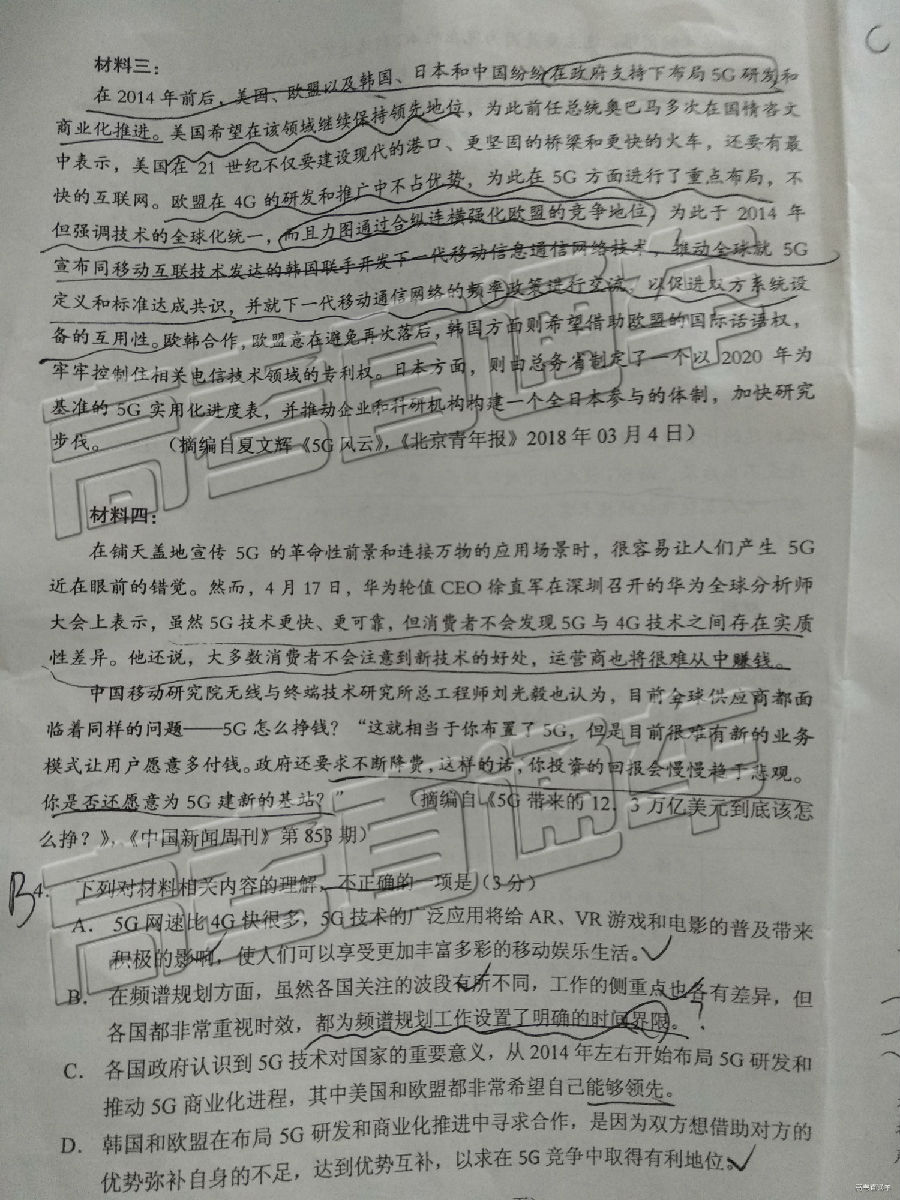 材料三：
在 2014 年前后，美国、欧盟以及韩国、日本和中国纷纷在政府支持下布局 5G 研发和
商业化推进。美国希望在该领域继续保持领先地位，为此前任总统奥巴马多次在国情咨文
中表示，美国在 21 世纪不仅要建设现代的港口、更坚固的桥梁和更快的火车，还要有最
快的互联网。欧盟在 4G 的研发和推广中不占优势，为此在 5G 方面进行了重点布局，不
但强调技术的全球化统一，而且力图通过合纵连横强化欧盟的竞争地位，为此于 2014 年
宣布同移动互联技术发达的韩国联手开发下一代移动信息通信网络技术，推动全球就 5G
定义和标准达成共识，并就下一代移动通信网络的频率政策进行交流，以促进双方系统设
备的互用性。欧韩合作，欧盟意在避免再次落后，韩国方面则希望借助欧盟的国际话语权，
牢牢控制住相关电信技术领域的专利权。日本方面，则由总务省制定了一个以 2020 年为
基准的 5G 实用化进度表，并推动企业和科研机构构建一个全日本参与的体制，加快研究
步伐。 （摘编自夏文辉《5G 风云》，《北京青年报》2018 年 03 月 4 日）
材料四：
在铺天盖地宣传 5G 的革命性前景和连接万物的应用场景时，很容易让人们产生 5G
近在眼前的错觉。然而，4 月 17 日，华为轮值 CEO 徐直军在深圳召开的华为全球分析师
大会上表示，虽然 5G 技术更快、更可靠，但消费者不会发现 5G 与 4G 技术之间存在实质
性差异。他还说，大多数消费者不会注意到新技术的好处，运营商也将很难从中赚钱。
中国移动研究院无线与终端技术研究所总工程师刘光毅也认为，目前全球供应商都面
临着同样的问题——5G 怎么挣钱？“这就相当于你布置了 5G，但是目前很难有新的业务
模式让用户愿意多付钱。政府还要求不断降费，这样的话，你投资的回报会慢慢趋于悲观。
你是否还愿意为 5G 建新的基站？” （摘编自《5G 带来的 12．3 万亿美元到底该怎
么挣？》，《中国新闻周刊》第 853 期）
B 4． 下列对材料相关内容的理解，不正确的一项是（3 分）
A． 5G 网速比 4G 快很多，5G 技术的广泛应用将给 AR、VR 游戏和电影的普及带来
积极的影响，使人们可以享受更加丰富多彩的移动娱乐生活。
B． 在频谱规划方面，虽然各国关注的波段有所不同，工作的侧重点也各有差异，但
各国都非常重视时效，都为频谱规划工作设置了明确的时间界限。？
C． 各国政府认识到 5G 技术对国家的重要意义，从 2014 年左右开始布局 5G 研发和
推动 5G 商业化进程，其中美国和欧盟都非常希望自己能够领先。
D． 韩国和欧盟在布局 5G 研发和商业化推进中寻求合作，是因为双方想借助对方的
优势弥补自身的不足，达到优势互补，以求在 5G 竞争中取得有利地位。
高考直通车
高考直通车